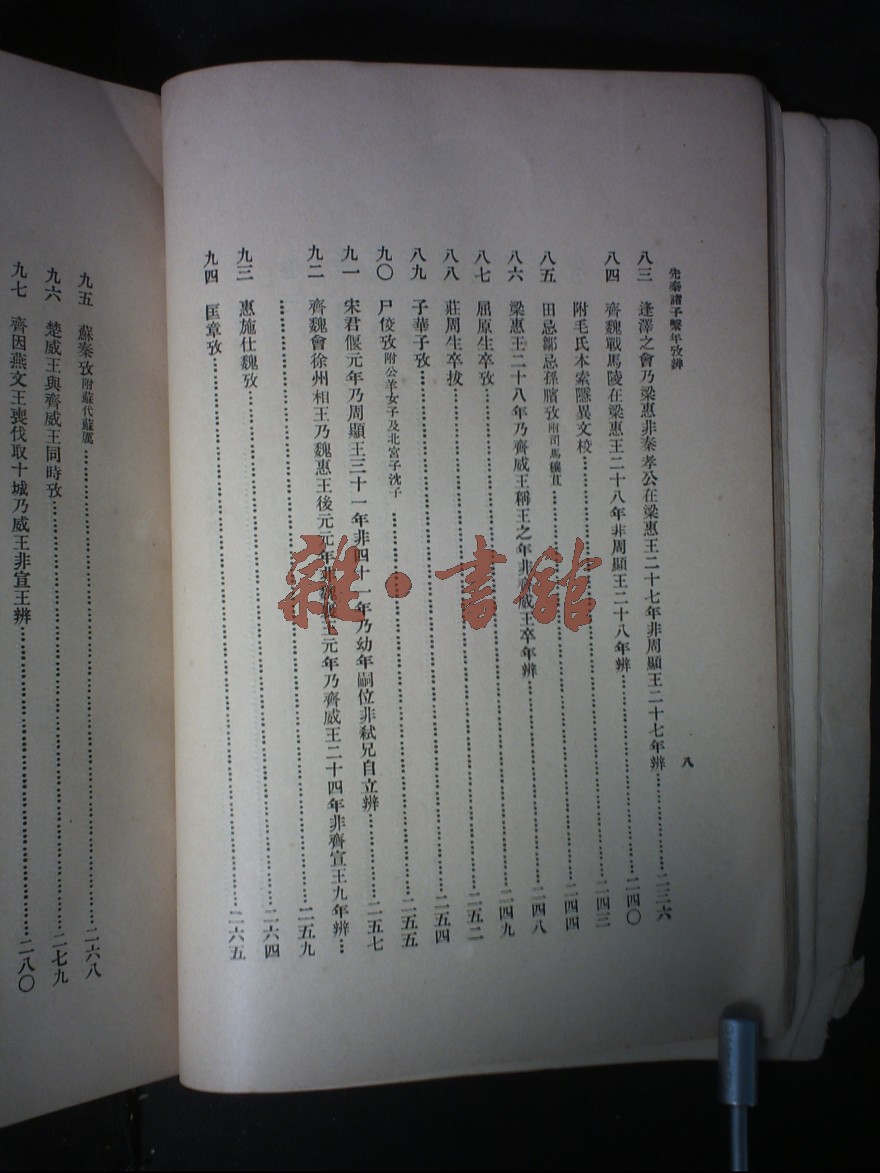 先秦諸子繫年攷辨
八
八三　逢澤之會乃梁惠非秦孝公在梁惠王二十七年非周顯王二十七年辨……二三六
八四　齊魏戰馬陵在梁惠王二十八年非周顯王二十八年辨……二四〇
附毛氏本索隱異文校……二四三
八五　田忌鄒忌孫臏攷附司馬穰苴……二四四
八六　梁惠王二十八年乃齊威王稱王之年非齊威王卒年辨……二四八
八七　屈原生卒攷……二四九
八八　莊周生卒攷……二五二
八九　子華子攷……二五四
九〇　尸佼攷附公羊女子及北宮子沈子……二五五
九一　宋君偃元年乃周顯王三十一年非四十一年乃幼年嗣位非弒兄自立辨……二五七
九二　齊魏會徐州相王乃魏惠王後元元年非魏襄王元年乃齊威王二十四年非齊宣王九年辨…
……二五九
九三　惠施仕魏攷……二六四
九四　匡章攷……二六五
九五　蘇秦攷附蘇代蘇厲……二六八
九六　楚威王與齊威王同時攷……二七九
九七　齊因燕文王喪伐取十城乃威王非宣王辨……二八〇
雜·書館